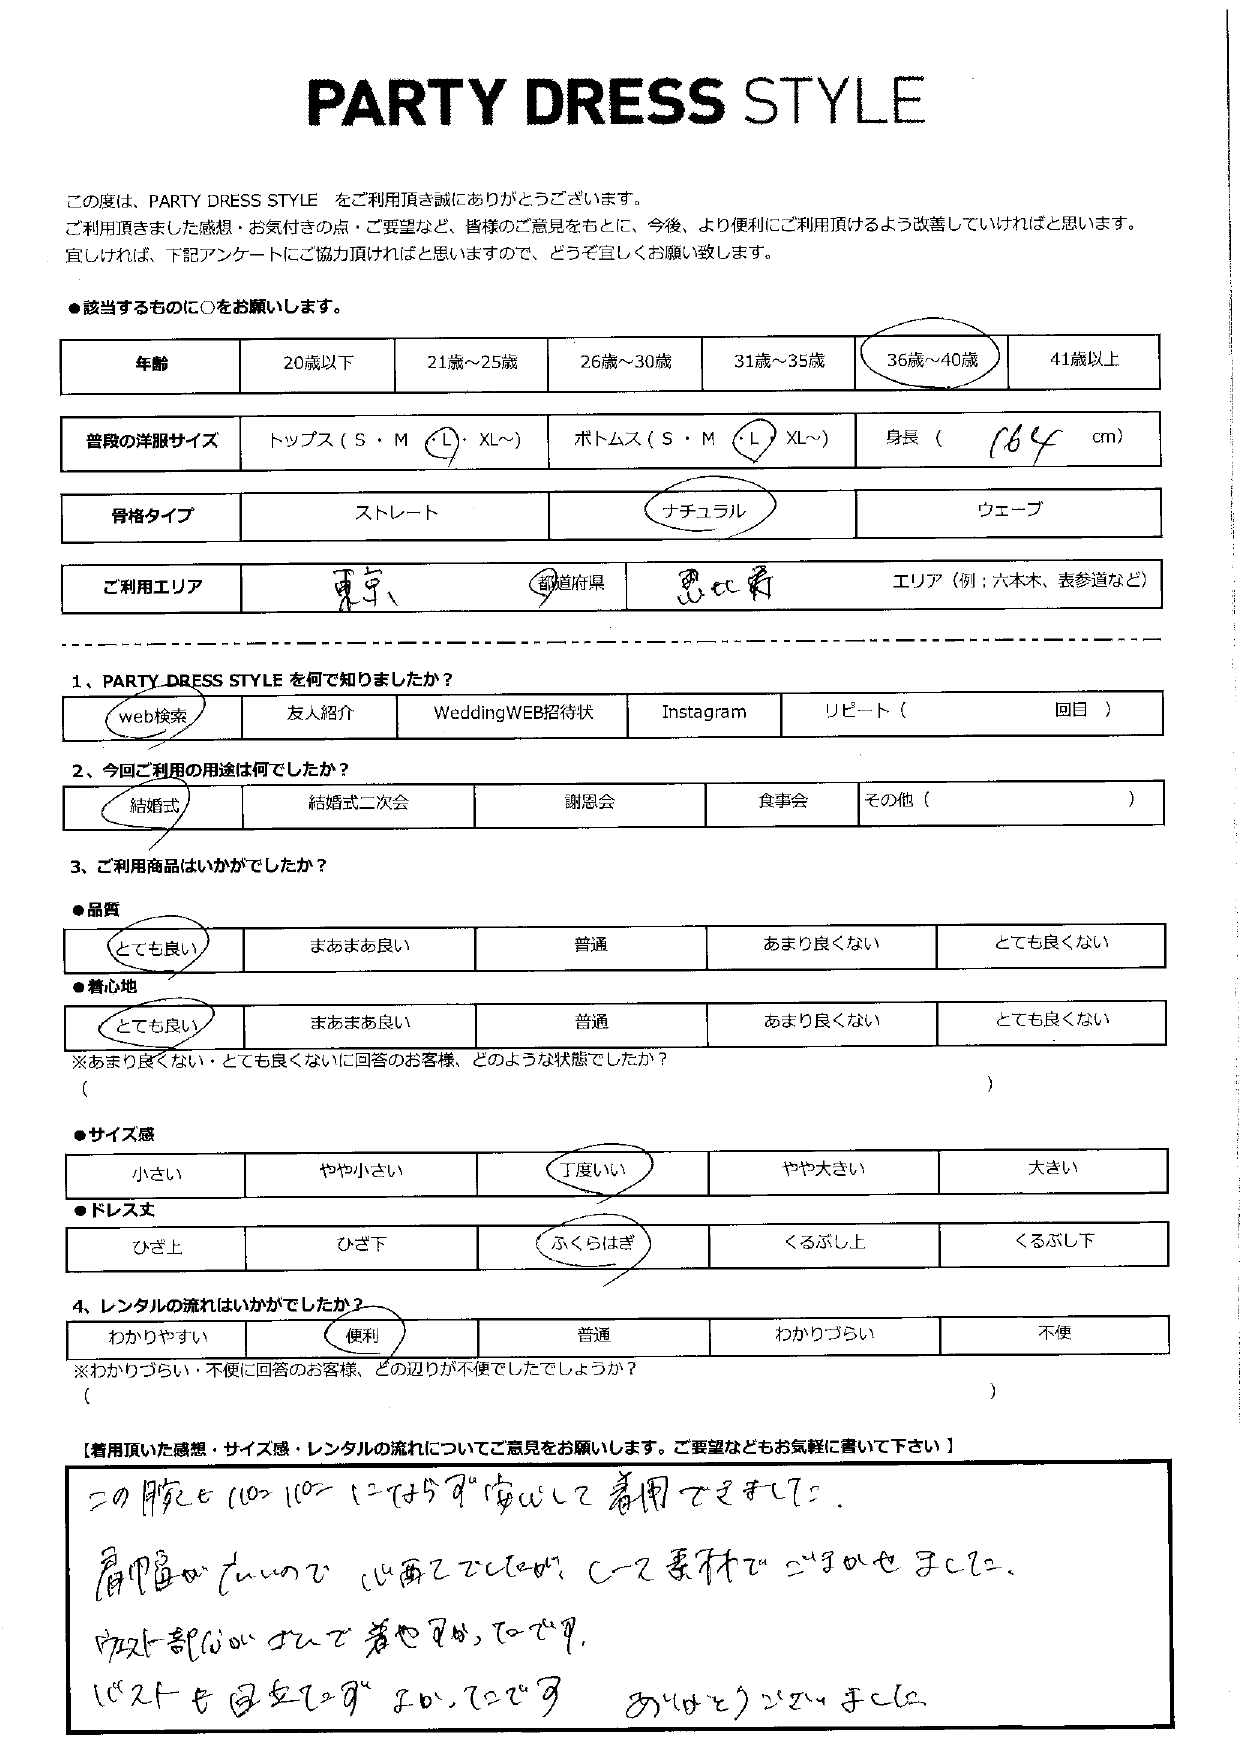 PARTY DRESS STYLE
この度は、PARTY DRESS STYLE をご利用頂き誠にありがとうございます。
ご利用頂きました感想・お気付きの点・ご要望など、皆様のご意見をもとに、今後、より便利にご利用頂けるよう改善していければと思います。
宜しければ、下記アンケートにご協力頂ければと思いますので、どうぞ宜しくお願い致します。
●該当するものに○をお願いします。
年齢 20歳以下 21歳～25歳 26歳～30歳 31歳～35歳 36歳～40歳 41歳以上
普段の洋服サイズ トップス ( S ・ M ・L・ XL～) ボトムス ( S ・ M ・L・ XL～) 身長 ( 164 cm)
骨格タイプ ストレート ナチュラル ウェーブ
ご利用エリア 東京 都道府県 恵比寿 エリア（例；六本木、表参道など）
1、PARTY DRESS STYLE を何で知りましたか？
web検索 友人紹介 WeddingWEB招待状 Instagram リピート（ 回目 ）
2、今回ご利用の用途は何でしたか？
結婚式 結婚式二次会 謝恩会 食事会 その他（ ）
3、ご利用商品はいかがでしたか？
●品質
とても良い まあまあ良い 普通 あまり良くない とても良くない
●着心地
とても良い まあまあ良い 普通 あまり良くない とても良くない
※あまり良くない・とても良くないに回答のお客様、どのような状態でしたか？
（ ）
●サイズ感
小さい やや小さい 丁度いい やや大きい 大きい
●ドレス丈
ひざ上 ひざ下 ふくらはぎ くるぶし上 くるぶし下
4、レンタルの流れはいかがでしたか？
わかりやすい 便利 普通 わかりづらい 不便
※わかりづらい・不便に回答のお客様、どの辺りが不便でしたでしょうか？
（ ）
【着用頂いた感想・サイズ感・レンタルの流れについてご意見をお願いします。ご要望などもお気軽に書いて下さい 】
二の腕も パツパツ にならず 安心して 着用できました.
肩幅が 広いので 心配でしたが、レース素材で ごまかせました.
ウエスト部分が で 着やすかったです.
バストも 目立たず よかったです ありがとうございました